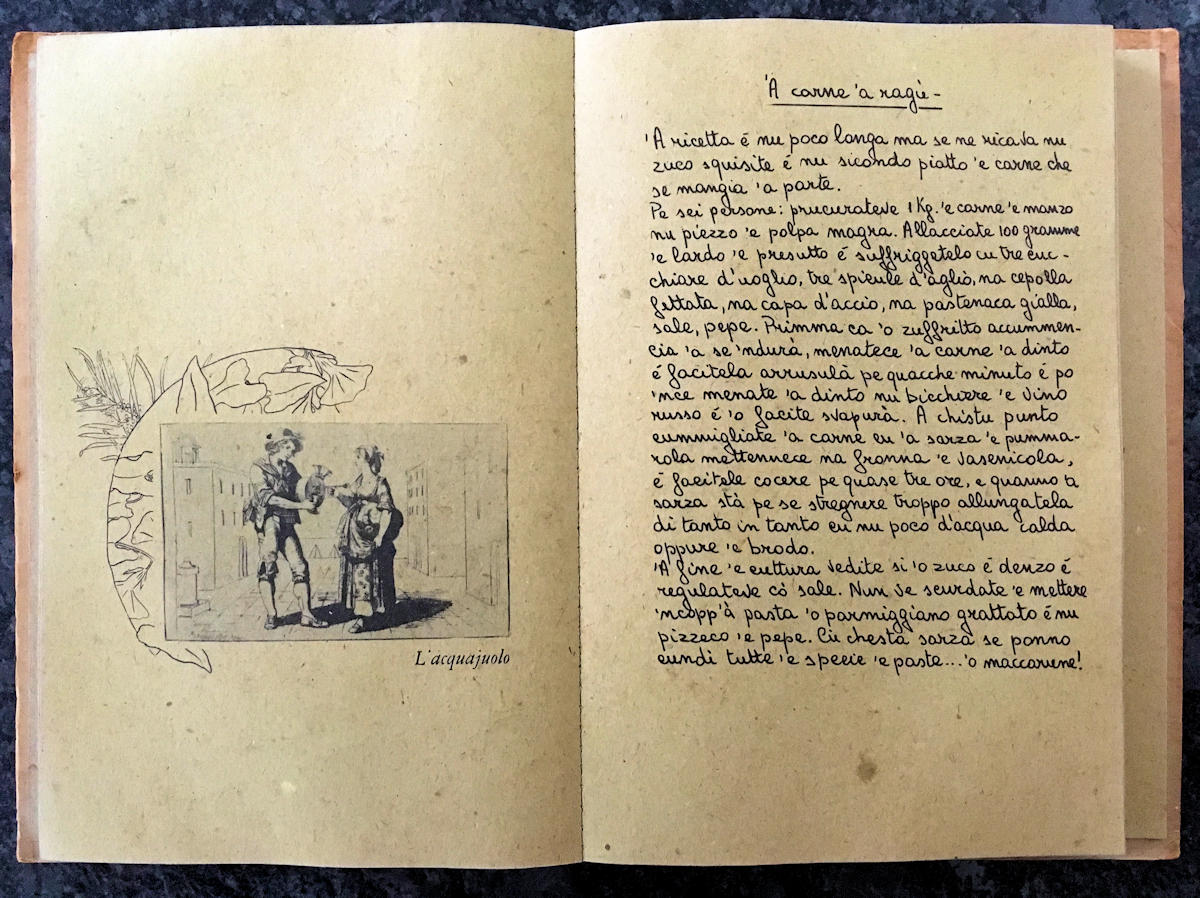 L'acquajuolo
'A carne 'a ragù -
'A ricetta é nu poco longa ma se ne ricava nu
zuco squisite é nu sicondo piatto 'e carne che
se mangia 'a parte.
Pe sei persone: prucurateve 1 Kg. 'e carne 'e manzo
nu piezzo 'e polpa magra. Allacciate 100 gramme
'e lardo 'e presutto é suffriggetelo cu tre cuc-
chiare d'uoglio, tre spicule d'aglio, na cepolla
fettata, na capa d'accio, na pastenaca gialla,
sale, pepe. Primma ca 'o zuffritto accummen-
cia 'a se 'ndurà, menatece 'a carne 'a dinto
é facitela arrusulà pe quacche minuto é po
'nce menate 'a dinto nu bicchiere 'e vino
russo é 'o facite svapurà. A chistu punto
cummigliate 'a carne cu 'a sarza 'e pumma-
rola mettennece na fronna 'e vasenicola,
é facitele cocere pe quase tre ore, e quanno 'a
sarza stà pe se stregnere troppo allungatela
di tanto in tanto cu nu poco d'acqua calda
oppure 'e brodo.
'A fine 'e cuttura vedite si 'o zuco é denzo é
regulateve cò sale. Nun ve scurdate 'e mettere
'ncopp'à pasta 'o parmiggiano grattato é nu
pizzeco 'e pepe. Cù chesta sarza se ponno
cundì tutte 'e specie 'e paste... 'o maccarune!